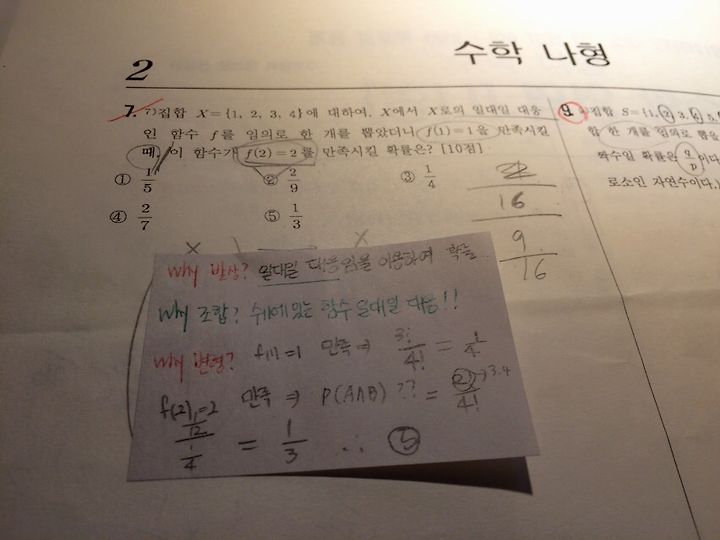 2
수학 나형
7. 7)집합 X={1, 2, 3, 4}에 대하여, X에서 X로의 일대일 대응
인 함수 f를 임의로 한 개를 뽑았더니 f(1)=1을 만족시킬
때, 이 함수가 f(2)=2를 만족시킬 확률은? [10점]
① 1/5 ② 2/9 ③ 1/4
④ 2/7 ⑤ 1/3
16
9/16
why 발상? 일대일 대응임을 이용하여 확률
why 조합? 수에있는 함수 일대일 대응!!
why 변형? f(1)=1 만족 ⇒ 3!/4! = 1/4
f(2)=2 만족 ⇒ P(A∩B) ?? = 2!/4! → 3.4
1/12 / 1/4 = 1/3 ∴ ⑤
9. 집합 S={1, 2, 3, 4, 5,
합 한 개를 임의로 뽑을
짝수일 확률은 q/p 이다
로소인 자연수이다.)